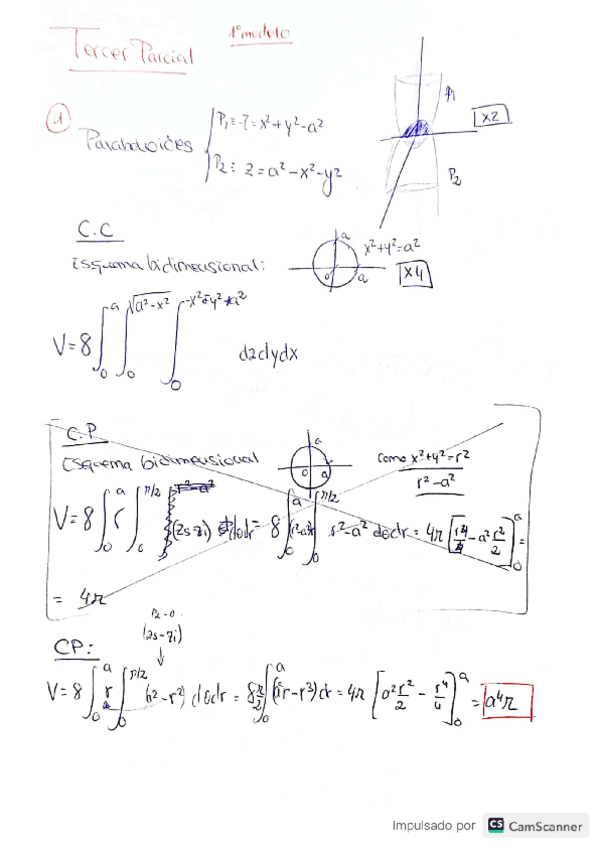 Tercer Parcial
1º modelo
1
Paraboloides
P₁ ≡ -z = x²+y²-a²
P₂ ≡ z = a²-x²-y²
P₁
x2
P₂
C.C
Esquema bidimensional:
a
x²+y²=a²
0
a
x4
V=8 ∫₀ᵃ ∫₀^√(a²-x²) ∫₀^(-x²-y²+a²) dzdydx
C.P
Esquema bidimensional
a
0
a
Como x²+y²=r²
r²-a²
V=8 ∫₀ᵃ r ∫₀^(π/2) (zs-zi) dθdr = 8 ∫₀ᵃ ∫₀^(π/2) r²-a² dθdr = 4π [r⁴/4 - a² r²/2]₀ᵃ =
= 4π
P₂-0
(zs-zi)
↓
CP:
V=8 ∫₀ᵃ r ∫₀^(π/2) (a²-r²) dθdr = 8 π/2 ∫₀ᵃ (a²r-r³)dr = 4π [a²r²/2 - r⁴/4]₀ᵃ = a⁴π
Impulsado por CS CamScanner